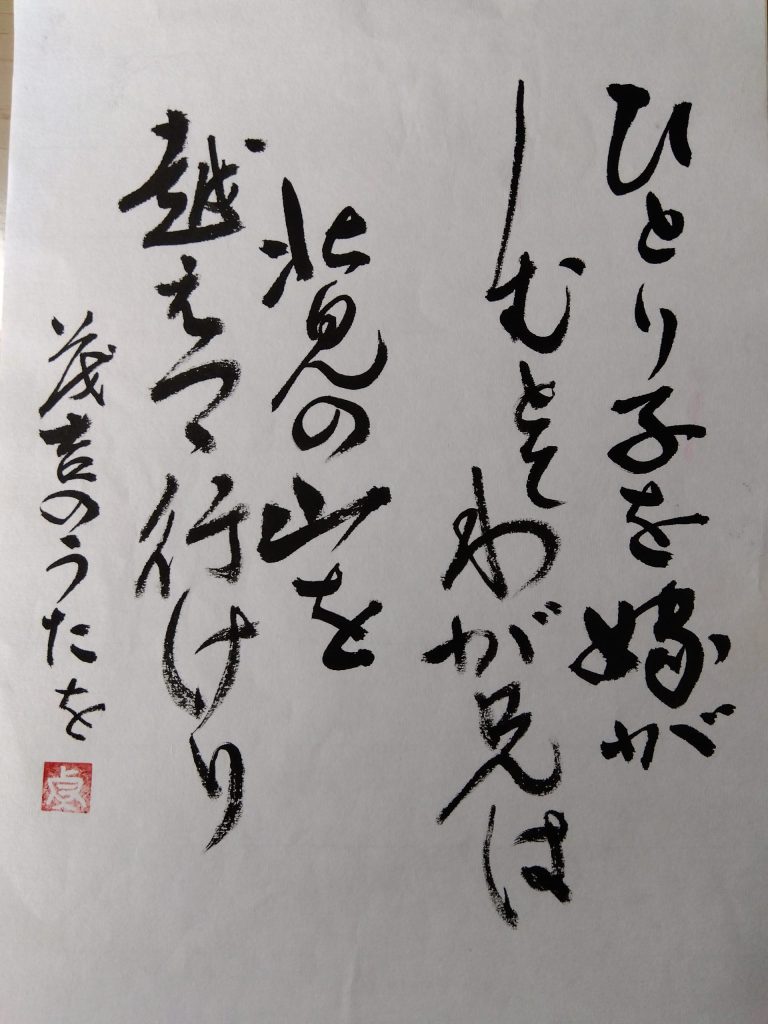 ひとり子を嫁が
しむとてわが兄は
北見の山を
越えて行けり
茂吉のうたを